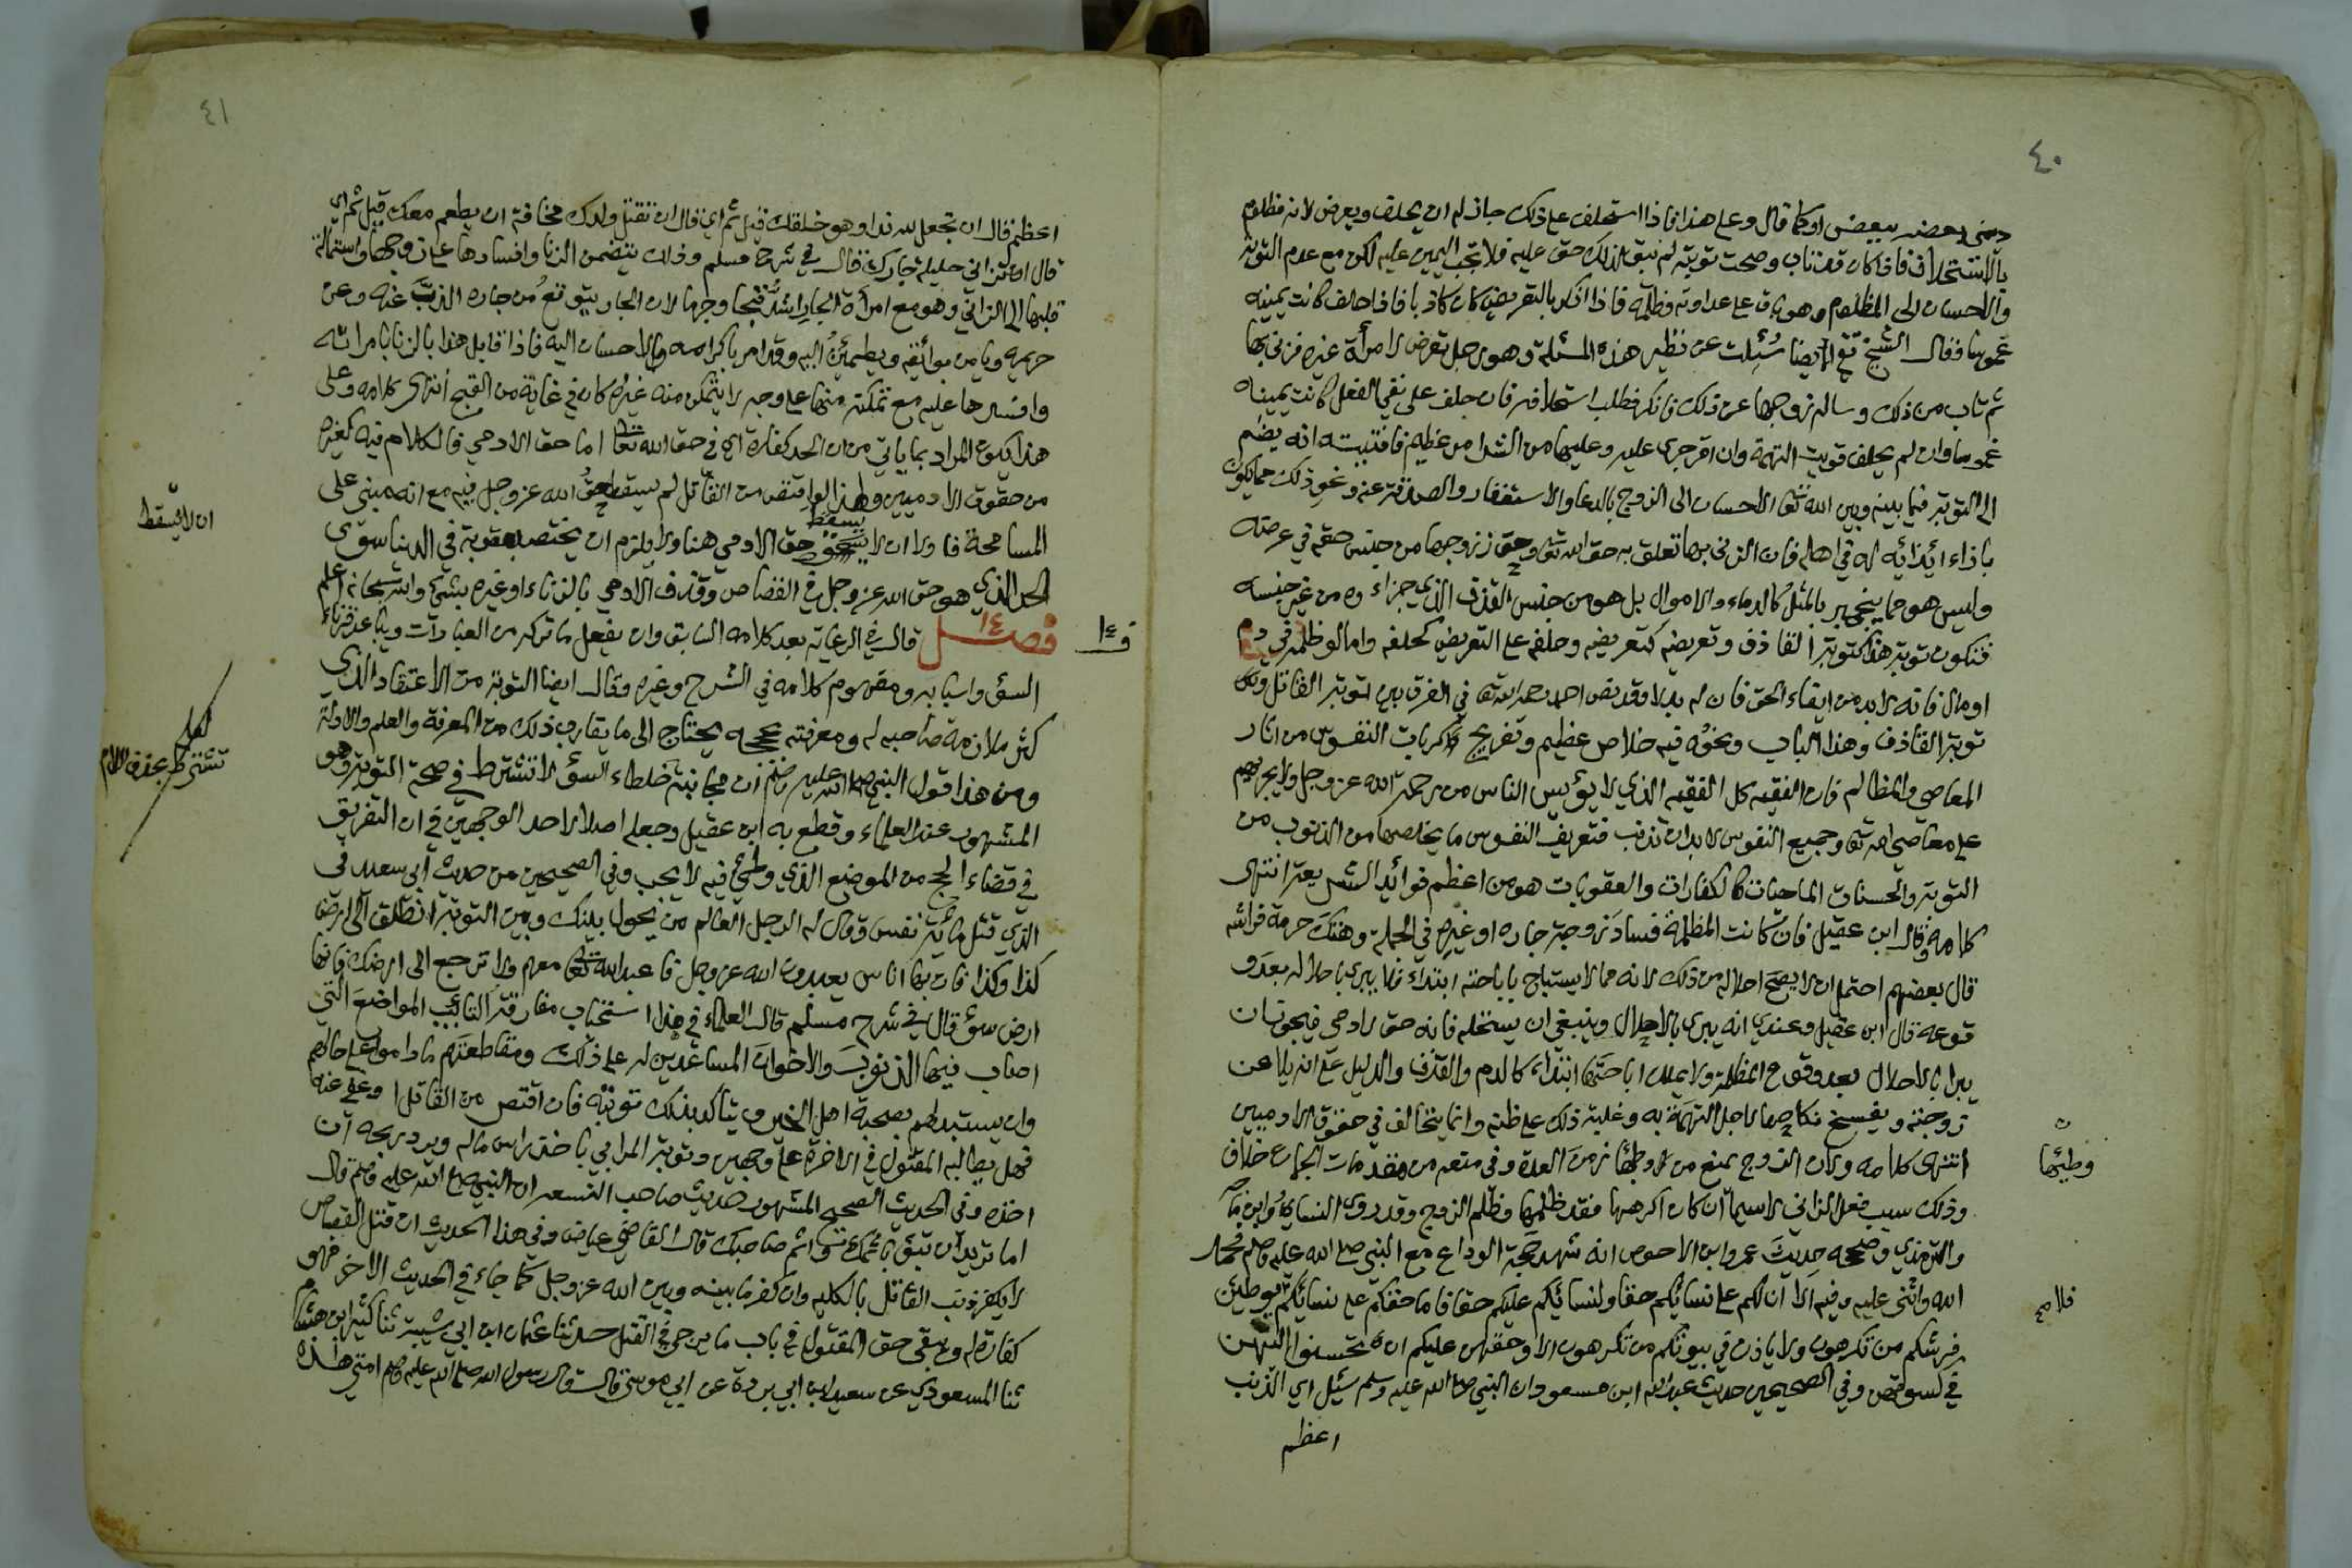 ٤٠
رضى بعضه ببعض او كما قال وعلى هذا فاذا استحلف على ذلك جاز له ان يحلف ويعرض لانه مظلوم
بالاستحلاف فاذا كان قد تاب وصحت توبته لم يبق لذلك حق عليه فلا تجب اليمين عليه لكن مع عدم التوبة
والاحسان الى المظلوم وهو باق على عداوته وظلمه فاذا انكر بالتعريض كان كاذبا فاذا حلف كانت يمينه
غموسا وقال الشيخ تقي ايضا سُئِلت عن نظير هذه المسئلة وهو رجل تعرض لامرأة غيره فزنى بها
ثم تاب من ذلك وساله زوجها عن ذلك فانكر فطلب استحلافه فان حلف على نفي الفعل كانت يمينه
غموسا وان لم يحلف قويت التهمة وان اقر جرى عليه وعليها من الشر امر عظيم فافتيته انه يضم
الى التوبة فيما بينه وبين الله تعا الاحسان الى الزوج بالدعا والاستغفار والصدقة عنه ونحو ذلك مما يكون
بازاء ايذائه له في اهله فان الزنى بها تعلق به حق الله تعا وحق زوجها من جنس حقه في عرضه
وليس هو مما ينجبر بالمثل كالدماء والاموال بل هو من جنس القذف الذي جزاءه من غير جنسه
فتكون توبة هذا كتوبة القاذف وتعريضه كتعريضه وحلفه على التعريض كحلفه واما لو ظلمه في دم
او مال فانه لابد من ايفاء الحق فان له بدلا وقد نص احمد رحمه الله تعا في الفرق بين توبة القاتل وبين
توبة القاذف وهذا الباب ونحوه فيه خلاص عظيم وتفريج كربات النفوس من اثار
المعاصي والمظالم فان الفقيه كل الفقيه الذي لا يؤيس الناس من رحمة الله عز وجل ولا يجريهم
على معاصي الله تعا وجميع النفوس لابد ان تذنب فتعريف النفوس ما يخلصها من الذنوب من
التوبة والحسنات الماحيات كالكفارات والعقوبات هو من اعظم فوائد الشريعة انتهى
كلامه وقال ابن عقيل فان كانت المظلمة فساد زوجة جاره او غيره في الجملة وهتك حرمة فراشه
قال بعضهم احتمل ان لا يصح احلاله من ذلك لانه مما لا يستباح باباحته ابتداء فلا يبرى باحلاله بعد و
قوعه قال ابن عقيل وعندي انه يبرى بالاحلال وينبغي ان يستحله فانه حق لادمي فيجوز ان
يبرا بالاحلال بعد وقوع المظلمة ولا يملك اباحتها ابتداء كالدم والقذف والدليل على انه يلاعن
زوجته ويفسخ نكاحها لاجل التهمة به وغلبة ذلك على ظنه وانما يتحالف في حقوق الادميين
انتهى كلامه ولان الزوج يمنع من وطئها زمن العدة وفي منعه من مقدمات الجماع خلاف
وطئها
وذلك سبب فعل الزاني لا سيما ان كان اكرهها فقد ظلمها وظلم الزوج وقد روى النسائي وابن ماجه
والترمذي وصححه حديث عمرو ابن الاحوص انه شهد حجة الوداع مع النبي صلى الله عليه وسلم فحمد
الله واثنى عليه وفيه الا ان لكم على نسائكم حقا ولنسائكم عليكم حقا فاما حقكم على نسائكم يوطئن
فلا
فرشكم من تكرهون ولا ياذن في بيوتكم من تكرهون الا وحقهن عليكم ان تحسنوا اليهن
في كسوتهن وفي الصحيحين حديث عبد الله ابن مسعود ان النبي صلى الله عليه وسلم سئل اي الذنب
اعظم
٤١
اعظم قال ان تجعل لله ندا وهو خلقك قيل ثم اي قال ان تقتل ولدك مخافة ان يطعم معك قيل ثم اي
قال ان تزاني حليلة جارك قال في شرح مسلم وذلك يتضمن الزنا وافسادها على زوجها واستمالة
قلبها الى الزاني وهو مع امرأة الجار اشد قبحا وجرما لان الجار يتوقع من جاره الذب عنه وعن
حريمه ويامن بوائقه ويطمئن اليه وقد امر باكرامه والاحسان اليه فاذا قابل هذا بالزنا بامراته
وافسدها عليه مع تمكنه منها على وجه لا يتمكن منه غيره كان في غاية من القبح انتهى كلامه وعلى
هذا يكون المراد بما ياتي من ان الحد كفارة اي في حق الله تعا اما حق الادمي فالكلام فيه كغيره
من حقوق الادميين ولهذا لو اقتص من القاتل لم يسقط حق الله عز وجل فيه مع انه مبني على
المسامحة فاولى ان لا يسقط حق الادمي هنا ولا يلزم ان يختص بعقوبة في الدنيا سوى
ان لا يسقط
الحد الذي هو حق الله عز وجل في القصاص وقذف الادمي بالزناء او غيره بشئ والله سبحانه اعلم
فصل ١٤ قال في الرعاية بعد كلامه السابق وان يفعل ما تركه من العبادات ويباعد قرناء
ف ١٤
السؤ واسبابه ومفهوم كلامه في الشرح وغيره وقال ايضا التوبة من الاعتقاد الذي
كثر ملازمة صاحبه له ومعرفته بحججه يحتاج الى ما يقارب ذلك من المعرفة والعلم والادلة
ومن هذا قول النبي صلى الله عليه وسلم ان مجانبة خلطاء السؤ لا تشترط في صحة التوبة وهو
لعله
تشترط بحذف اللام
المشهور عند العلماء وقطع به ابن عقيل وجعله اصلا لاحد الوجهين في ان التفريق
في قضاء الحج من الموضع الذي وطئ فيه لا يجب وفي الصحيحين من حديث ابي سعيد في
الذي قتل مائة نفس وقال له الرجل العالم من يحول بينك وبين التوبة انطلق الى ارض
كذا وكذا فان بها اناس يعبدون الله عز وجل فاعبد الله تعا معهم ولا ترجع الى ارضك فانها
ارض سؤ قال في شرح مسلم قال العلماء في هذا استحباب مفارقة التائب المواضع التي
اصاب فيها الذنوب والاخوان المساعدين له على ذلك ومقاطعتهم ما داموا على حالهم
وان يستبدلهم بصحبة اهل الخير ويتاكد بذلك توبته فان اقتص من القاتل او عفي عنه
فهل يطالبه المقتول في الاخرة على وجهين وتوبة المرابي باخذ راس ماله ويرد ربحه ان
اخذه وفي الحديث الصحيح المشهور حديث صاحب النسعة ان النبي صلى الله عليه وسلم قال
اما تريد ان تبؤ باثمك واثم صاحبك قال القاضي عياض وفي هذا الحديث ان قتل القصاص
لا يكفر ذنب القاتل بالكلية وان كفر ما بينه وبين الله عز وجل كما جاء في الحديث الاخر فهو
كفارة له ويبقى حق المقتول في باب ما يرجى في القتل حدثنا عثمان ابن ابي شيبة ثنا كثير ابن هشام
ثنا المسعودي عن سعيد ابن ابي بردة عن ابي موسى قال قال رسول الله صلى الله عليه وسلم امتي هذه